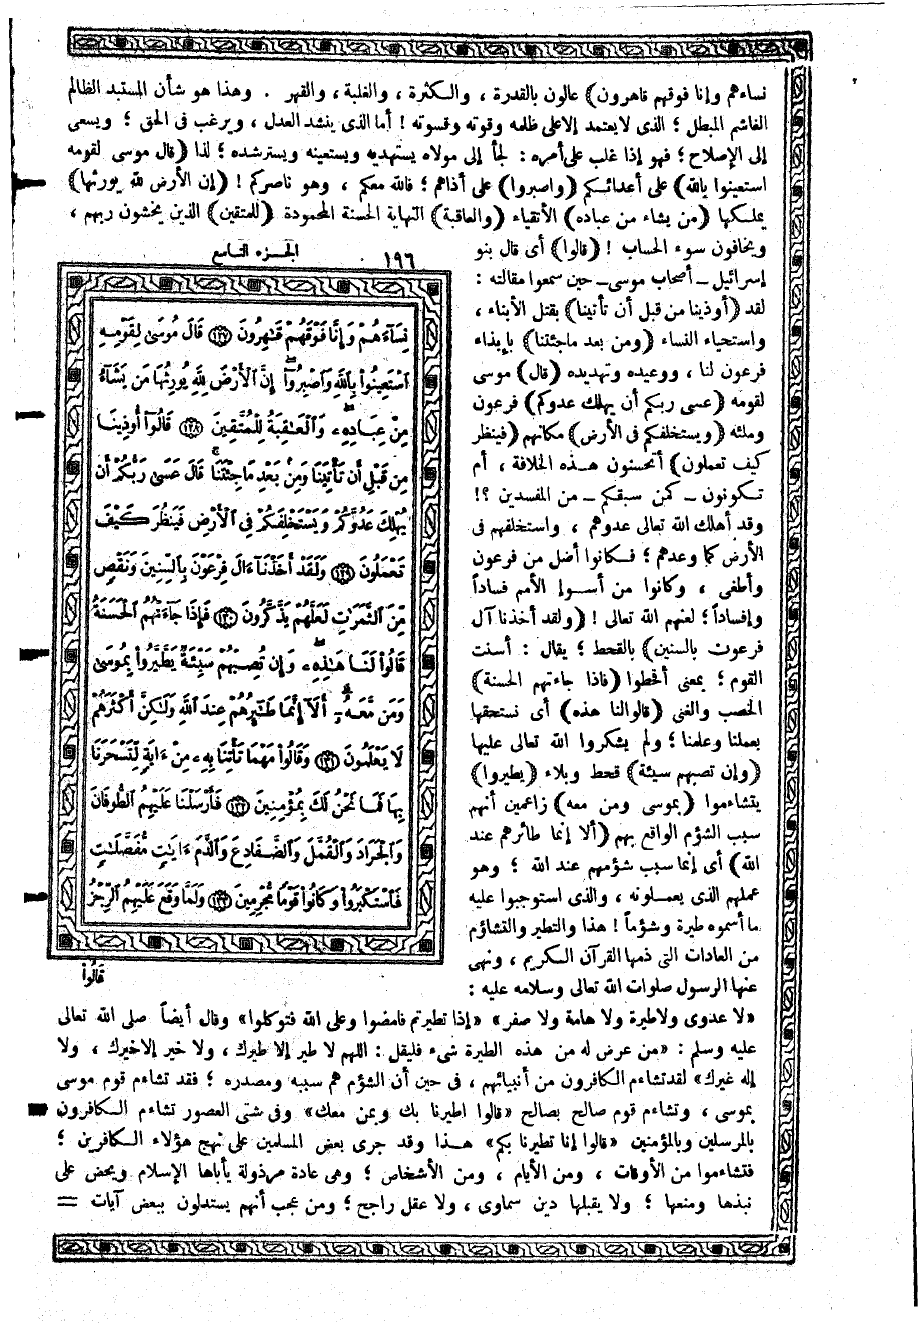 نساءهم وإنا فوقهم قاهرون) عالون بالقدرة ، والكثرة ، والغلبة ، والقهر . وهذا هو شأن المستبد الظالم
الغاشم المبطل ؛ الذى لا يعتمد إلا على ظلمه وقوته وقسوته ! أما الذى ينشد العدل ، ويرغب فى الحق ؛ ويسعى
إلى الإصلاح ؛ فهو إذا غلب على أمره : لجأ إلى مولاه يستهديه ويستعينه ويسترشده ؛ لذا (قال موسى لقومه
استعينوا بالله) على أعدائكم (واصبروا) على أذاهم ؛ فالله معكم ، وهو ناصركم ! (إن الأرض لله يورثها)
يملكها (من يشاء من عباده) الأتقياء (والعاقبة) النهاية الحسنة المحمودة (للمتقين) الذين يخشون ربهم ،
ويخافون سوء الحساب ! (قالوا) أى قال بنو
إسرائيل ــ أصحاب موسى ــ حين سمعوا مقالته :
لقد (أوذينا من قبل أن تأتينا) بقتل الأبناء ،
واستحياء النساء (ومن بعد ماجئتنا) بإيذاء
فرعون لنا ، ووعيده وتهديده (قال) موسى
لقومه (عسى ربكم أن يهلك عدوكم) فرعون
وملئه (ويستخلفكم فى الأرض) مكانهم (فينظر
كيف تعملون) أتحسنون هذه الخلافة ، أم
تكونون ــ كمن سبقكم ــ من المفسدين ؟!
وقد أهلك الله تعالى عدوهم ، واستخلفهم فى
الأرض كما وعدهم ؛ فكانوا أضل من فرعون
وأطغى ، وكانوا من أسوإ الأمم فساداً
وإفساداً ؛ لعنهم الله تعالى ! (ولقد أخذنا آل
فرعون بالسنين) بالقحط ؛ يقال : أسنت
القوم ؛ بمعنى أقحطوا (فاذا جاءتهم الحسنة)
الخصب والغنى (قالوا لنا هذه) أى نستحقها
بعملنا وعلمنا ؛ ولم يشكروا الله تعالى عليها
(وإن تصبهم سيئة) قحط وبلاء (يطيروا)
يتشاءموا (بموسى ومن معه) زاعمين أنهم
سبب الشؤم الواقع بهم (ألا إنما طائرهم عند
الله) أى إنما سبب شؤمهم عند الله ؛ وهو
عملهم الذى يعملونه ، والذى استوجبوا عليه
ما أسموه طيرة وشؤماً ! هذا والتطير والتشاؤم
من العادات التى ذمها القرآن الكريم ، ونهى
عنها الرسول صلوات الله تعالى وسلامه عليه :
الجزء التاسع
١٩٦
نِسَآءَهُمْ وَإِنَّا فَوْقَهُمْ قَٰهِرُونَ ﴿١٢٧﴾ قَالَ مُوسَىٰ لِقَوْمِهِ
ٱسْتَعِينُوا۟ بِٱللَّهِ وَٱصْبِرُوٓا۟ ۖ إِنَّ ٱلْأَرْضَ لِلَّهِ يُورِثُهَا مَن يَشَآءُ
مِنْ عِبَادِهِۦ ۖ وَٱلْعَٰقِبَةُ لِلْمُتَّقِينَ ﴿١٢٨﴾ قَالُوٓا۟ أُوذِينَا
مِن قَبْلِ أَن تَأْتِيَنَا وَمِنۢ بَعْدِ مَا جِئْتَنَا ۚ قَالَ عَسَىٰ رَبُّكُمْ أَن
يُهْلِكَ عَدُوَّكُمْ وَيَسْتَخْلِفَكُمْ فِى ٱلْأَرْضِ فَيَنظُرَ كَيْفَ
تَعْمَلُونَ ﴿١٢٩﴾ وَلَقَدْ أَخَذْنَآ ءَالَ فِرْعَوْنَ بِٱلسِّنِينَ وَنَقْصٍ
مِّنَ ٱلثَّمَرَٰتِ لَعَلَّهُمْ يَذَّكَّرُونَ ﴿١٣٠﴾ فَإِذَا جَآءَتْهُمُ ٱلْحَسَنَةُ
قَالُوا۟ لَنَا هَٰذِهِۦ ۖ وَإِن تُصِبْهُمْ سَيِّئَةٌ يَطَّيَّرُوا۟ بِمُوسَىٰ
وَمَن مَّعَهُۥٓ ۗ أَلَآ إِنَّمَا طَٰٓئِرُهُمْ عِندَ ٱللَّهِ وَلَٰكِنَّ أَكْثَرَهُمْ
لَا يَعْلَمُونَ ﴿١٣١﴾ وَقَالُوا۟ مَهْمَا تَأْتِنَا بِهِۦ مِنْ ءَايَةٍ لِّتَسْحَرَنَا
بِهَا فَمَا نَحْنُ لَكَ بِمُؤْمِنِينَ ﴿١٣٢﴾ فَأَرْسَلْنَا عَلَيْهِمُ ٱلطُّوفَانَ
وَٱلْجَرَادَ وَٱلْقُمَّلَ وَٱلضَّفَادِعَ وَٱلدَّمَ ءَايَٰتٍ مُّفَصَّلَٰتٍ
فَٱسْتَكْبَرُوا۟ وَكَانُوا۟ قَوْمًا مُّجْرِمِينَ ﴿١٣٣﴾ وَلَمَّا وَقَعَ عَلَيْهِمُ ٱلرِّجْزُ
قَالُوا۟
«لا عدوى ولا طيرة ولا هامة ولا صفر» «إذا تطيرتم فامضوا وعلى الله فتوكلوا» وقال أيضاً صلى الله تعالى
عليه وسلم : «من عرض له من هذه الطيرة شىء فليقل : اللهم لا طير إلا طيرك ، ولا خير إلا خيرك ، ولا
إله غيرك» لقد تشاءم الكافرون من أنبيائهم ، فى حين أن الشؤم هم سببه ومصدره ؛ فقد تشاءم قوم موسى
بموسى ، وتشاءم قوم صالح بصالح «قالوا اطيرنا بك وبمن معك» وفى شتى العصور تشاءم الكافرون
بالمرسلين وبالمؤمنين «قالوا إنا تطيرنا بكم» هذا وقد جرى بعض المسلمين على نهج هؤلاء الكافرين ؛
فتشاءموا من الأوقات ، ومن الأيام ، ومن الأشخاص ؛ وهى عادة مرذولة يأباها الإسلام ويحض على
نبذها ومنعها ؛ ولا يقبلها دين سماوى ، ولا عقل راجح ؛ ومن عجب أنهم يستدلون ببعض آيات =